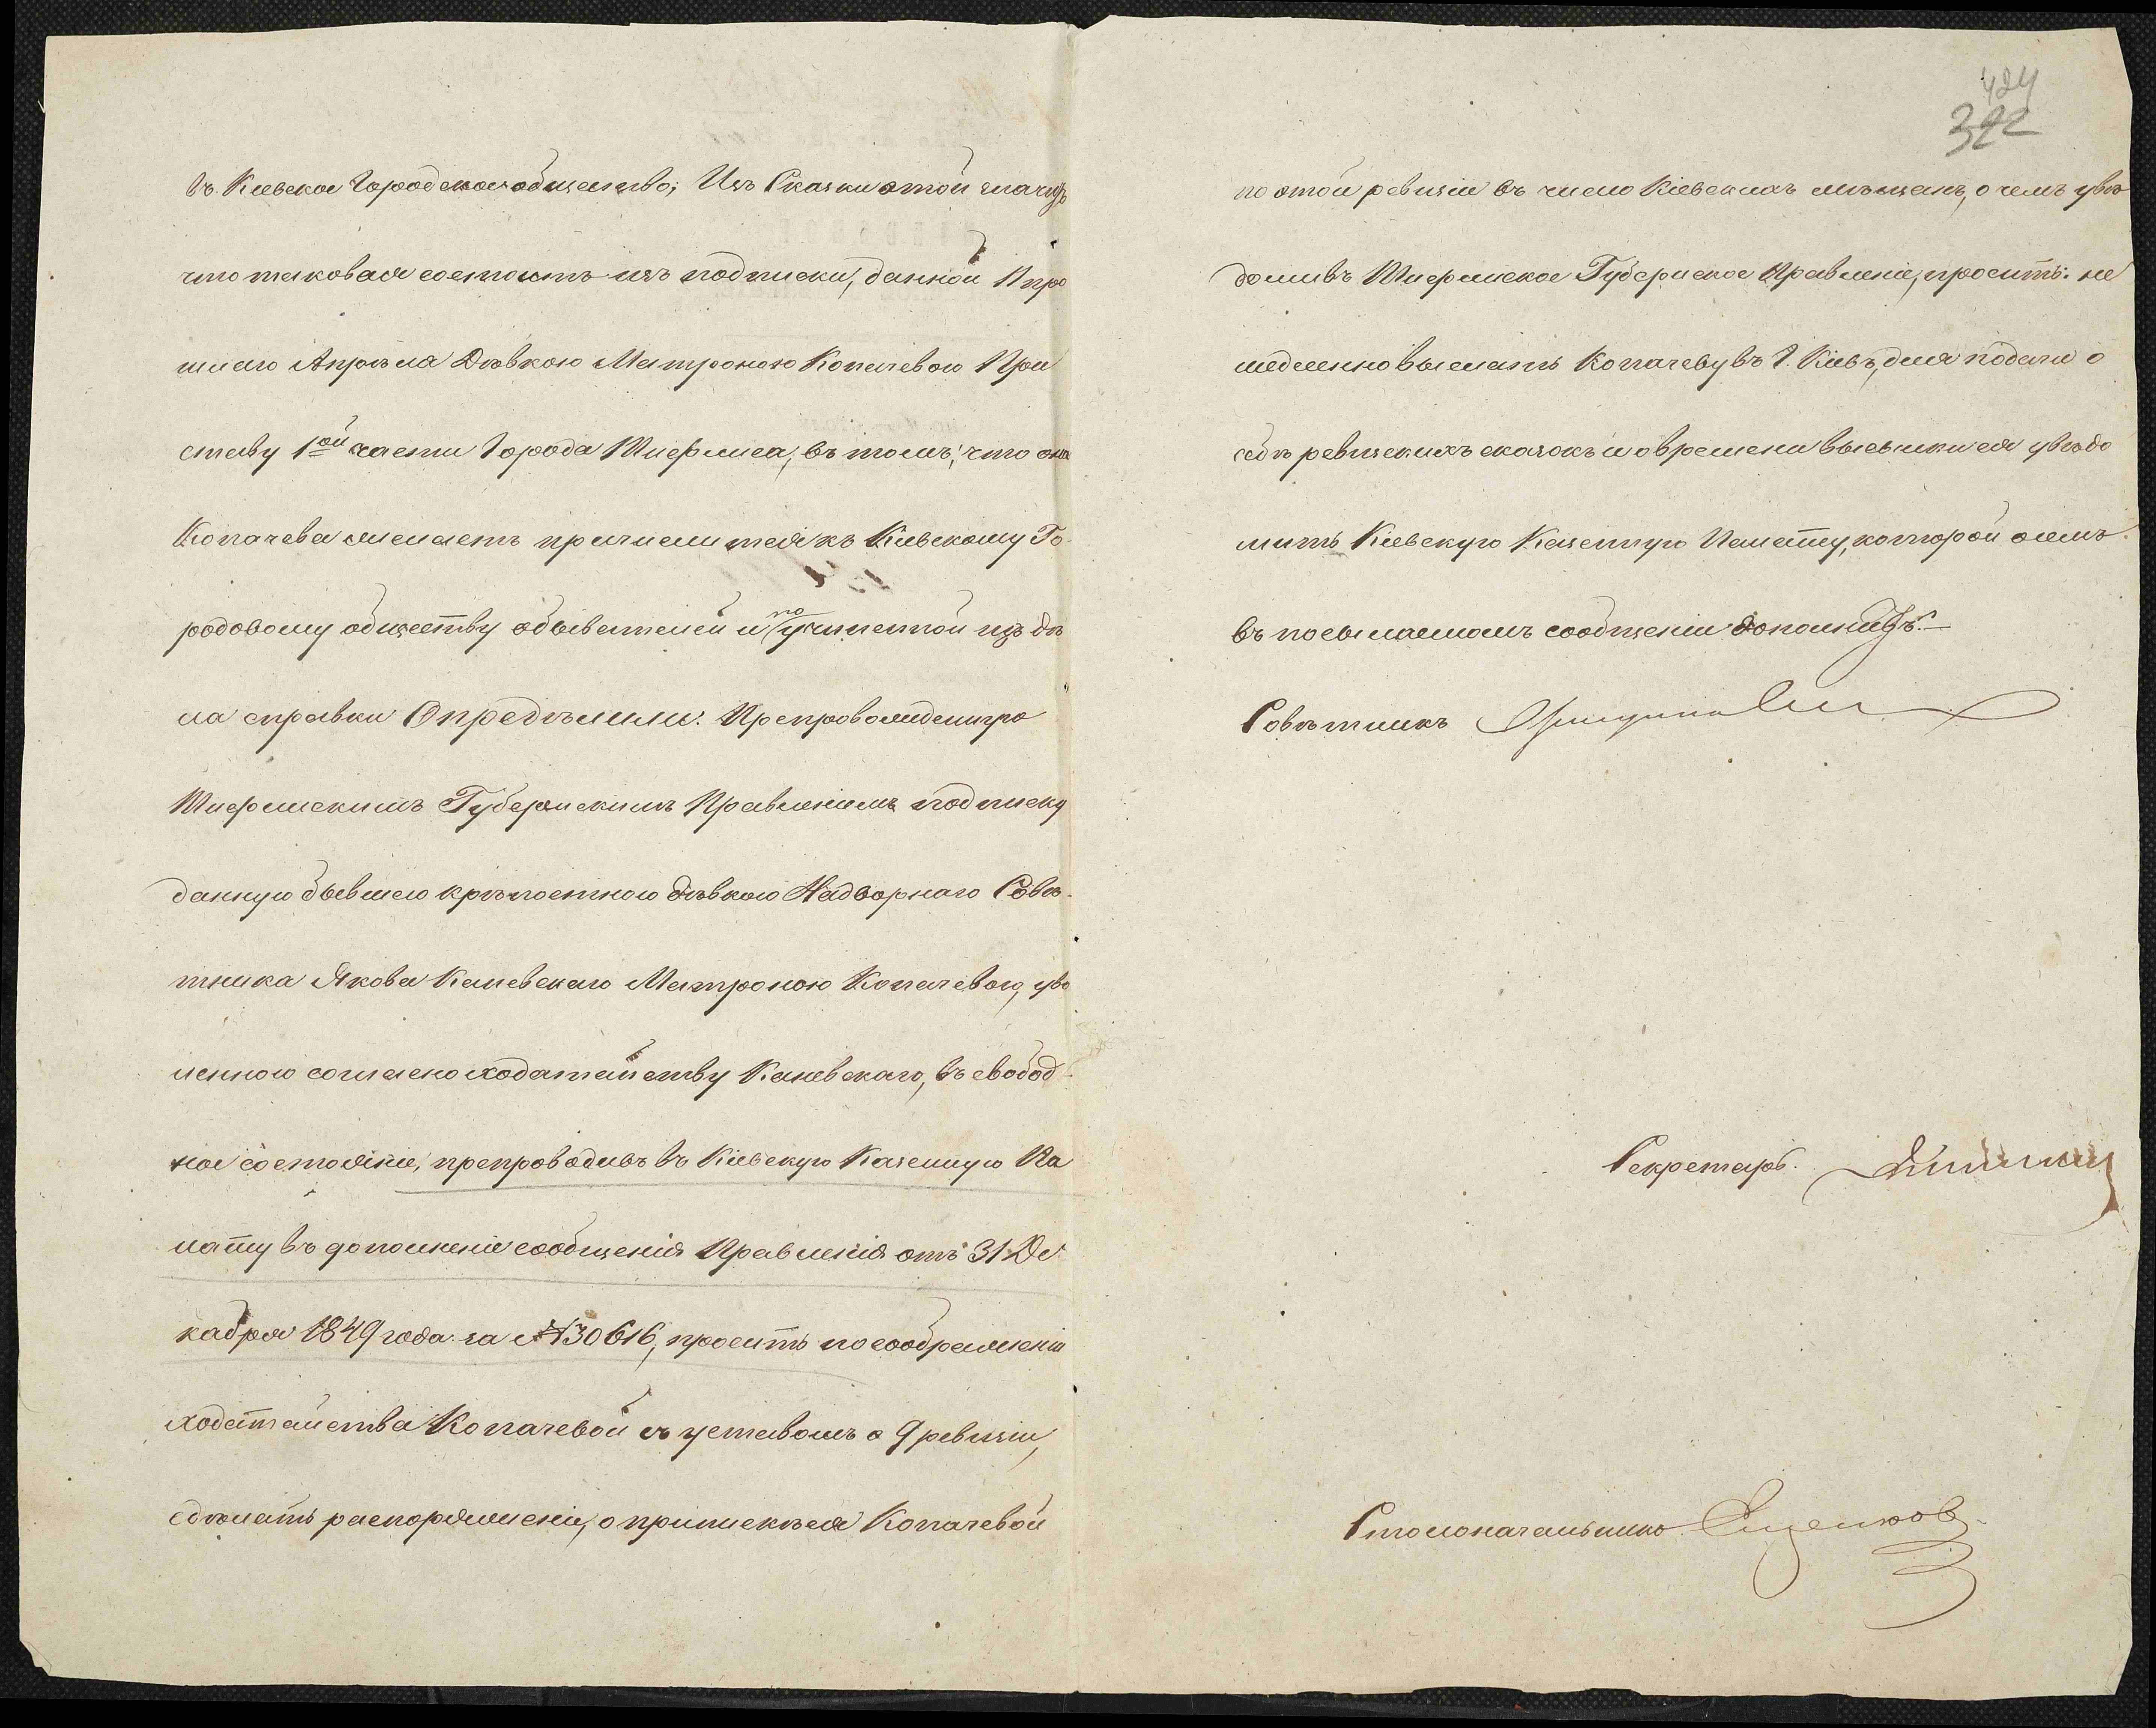 424
322
въ Кіевское Городское общество; Изъ Сказки этой значитъ
что таковая состоитъ изъ подписки, данной 11 про
шлаго Апрѣля Дѣвкою Матроною Копачевою При
ставу 1ой части Города Тифлиса, въ томъ, что она
Копачева желаетъ причислиться къ Кіевскому Го-
родовому обществу обывателей и по учиненной изъ дѣ
ла справки Опредѣлили: Препровожденную
Тифлискимъ Губернскимъ Правленіемъ подписку
данную бывшею крѣпостною дѣвкою Надворнаго Совѣ-
тника Якова Каневскаго Матроною Копачевою, уво
ленною согласно ходатайству Каневскаго, въ свобод-
ное состояніе, препроводивъ въ Кіевскую Казенную Па
лату въ дополненіе сообщенія Правленія отъ 31 Де
кабря 1849 года за №30616, просить по соображеніи
ходатайства Копачевой съ уставомъ о 9 ревизіи,
сдѣлать распоряженіе, о припискѣ ея Копачевой
по этой ревизіи въ число Кіевскихъ мѣщанъ, о чемъ увѣ
домивъ Тифлиское Губернское Правленіе, просить: не
медленно выслать Копачеву въ Г. Кіевъ, для подачи о
себѣ ревизскихъ сказокъ и о времени высылки ея увѣдо
мить Кіевскую Казенную Палату, которой о семъ
въ посылаемомъ сообщеніи дополнить.—
Совѣтникъ
Секретарь.
Столоначальникъ